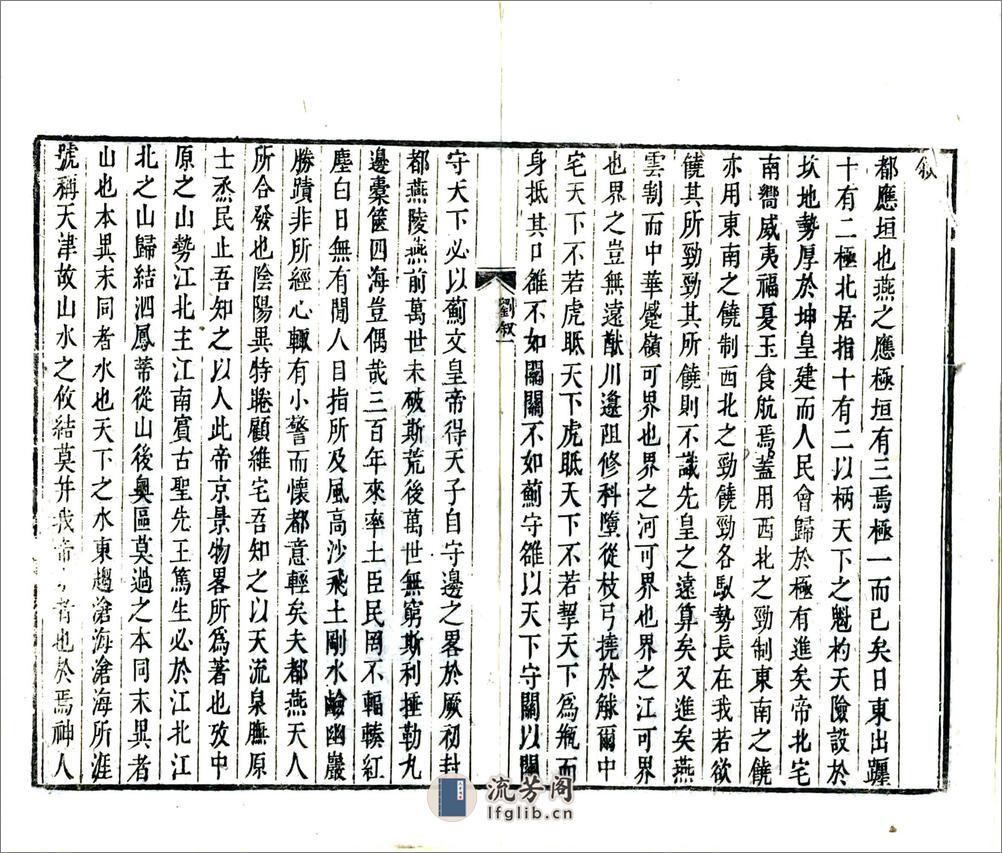 叙
都應垣也燕之應極垣有三焉極一而已矣日東出躔
十有二極北居指十有二以柄天下之魁杓天險設於
坎地勢厚於坤皇建而人民會歸於極有進矣帝北宅
南嚮威夷福憂玉食航焉蓋用西北之勁制東南之饒
亦用東南之饒制西北之勁饒勁各馭勢長在我若欲
饒其所勁勁其所饒則不識先皇之遠算矣又進矣燕
雲制而中華蹙嶺可界也界之河可界也界之江可界
也界之豈無遠猷川邊阻修科墮從枝弓撓於觮爾中
宅天下不若虎眂天下虎眂天下不若挈天下為瓶而
身抵其口雒不如關關不如薊守雒以天下守關以關
劉叙一
守天下必以薊文皇帝得天子自守邊之畧於厥初封
都燕陵燕前萬世未破斯荒後萬世無窮斯利捶勒九
邊橐篋四海豈偶哉三百年來率土臣民罔不輻輳紅
塵白日無有閒人目指所及風高沙飛土剛水鹼幽巖
勝蹟非所經心輒有小警而懷都意輕矣夫都燕天人
所合發也陰陽異特睠顧維宅吾知之以天流泉膴原
士烝民止吾知之以人此帝京景物畧所為著也攷中
原之山勢江北主江南賓古聖先王篤生必於江北江
北之山歸結泗鳳蒂從山後奧區莫過之本同末異者
山也本異末同者水也天下之水東趨滄海滄海所涯
號稱天津故山水之攸結莫幷我帝者也於焉神人
流芳阁
lfglib.cn